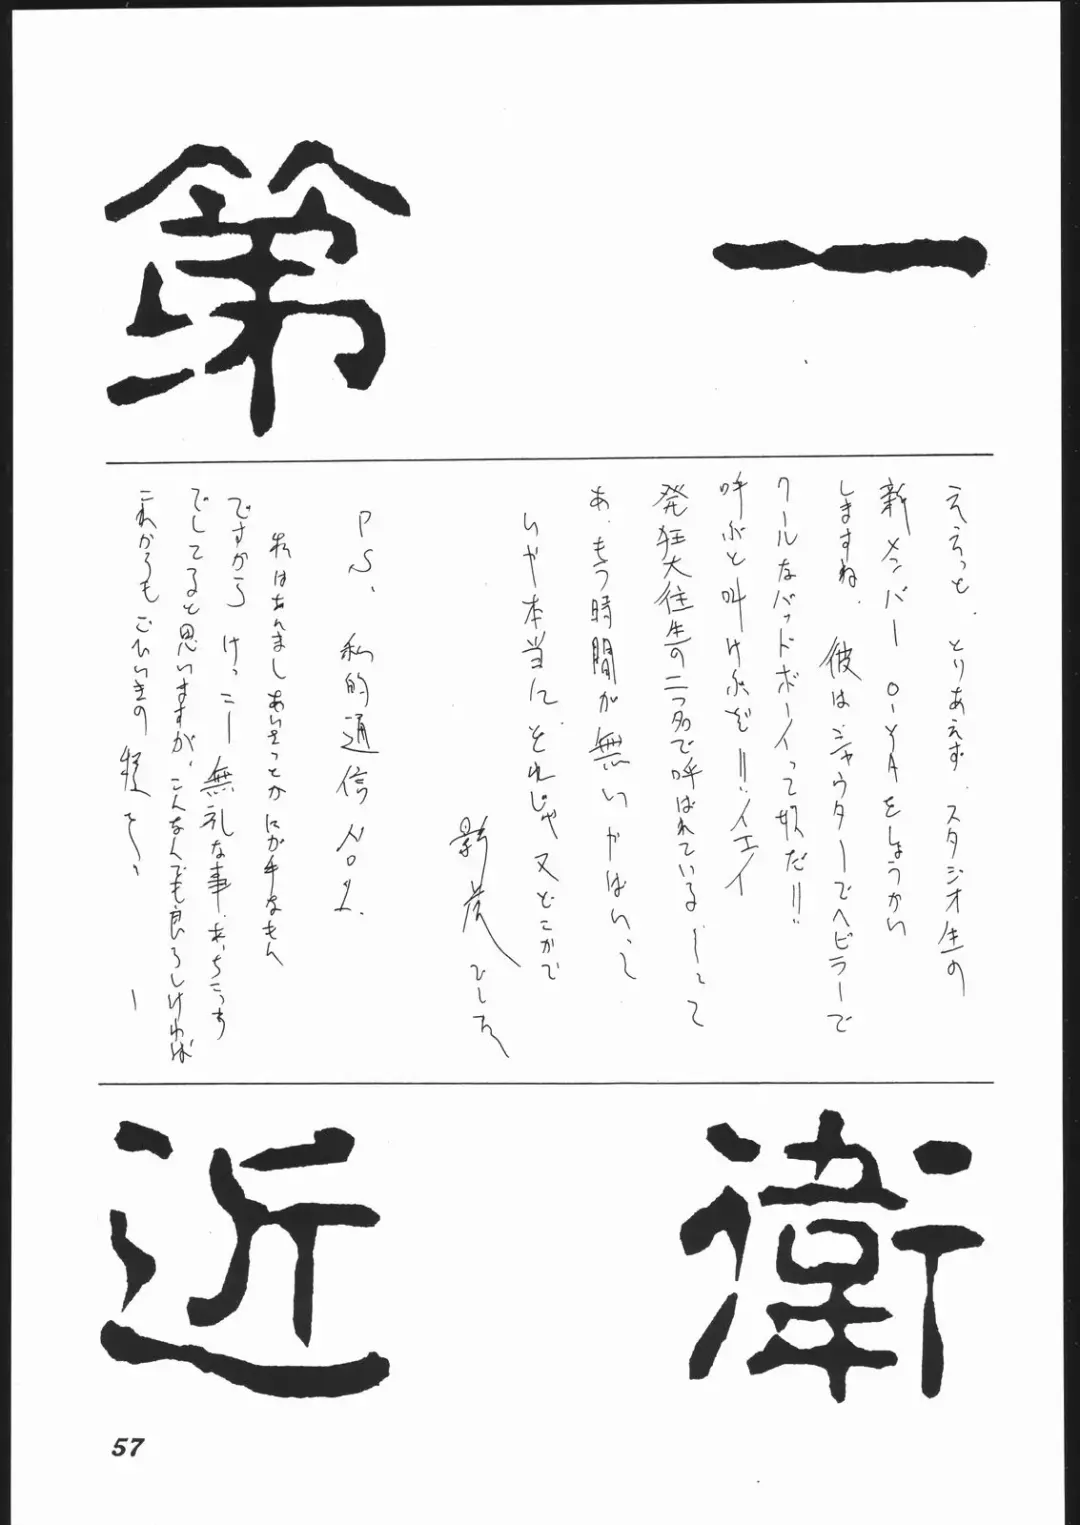 第一
ええっと、とりあえず、スタジオ生の
新メンバー O-YAをしょうかい
しますね。 彼はシャウターでヘビラーで
クールなバッドボーイって奴だ!!
呼ぶと叫けぶぞ!!イエイ
発狂大往生の二つ名で呼ばれている
あ、もう時間が無いやばいっし
いや本当に、それじゃ又どこかで
影
P.S. 私的通信 No1.
私はあんましあいさつとかにが手なもん
ですから けっこー無礼な事、あっちこっち
でしてると思いますが、こんなんでも良ろしければ
これからもごひいきの程を〜
近衛
57